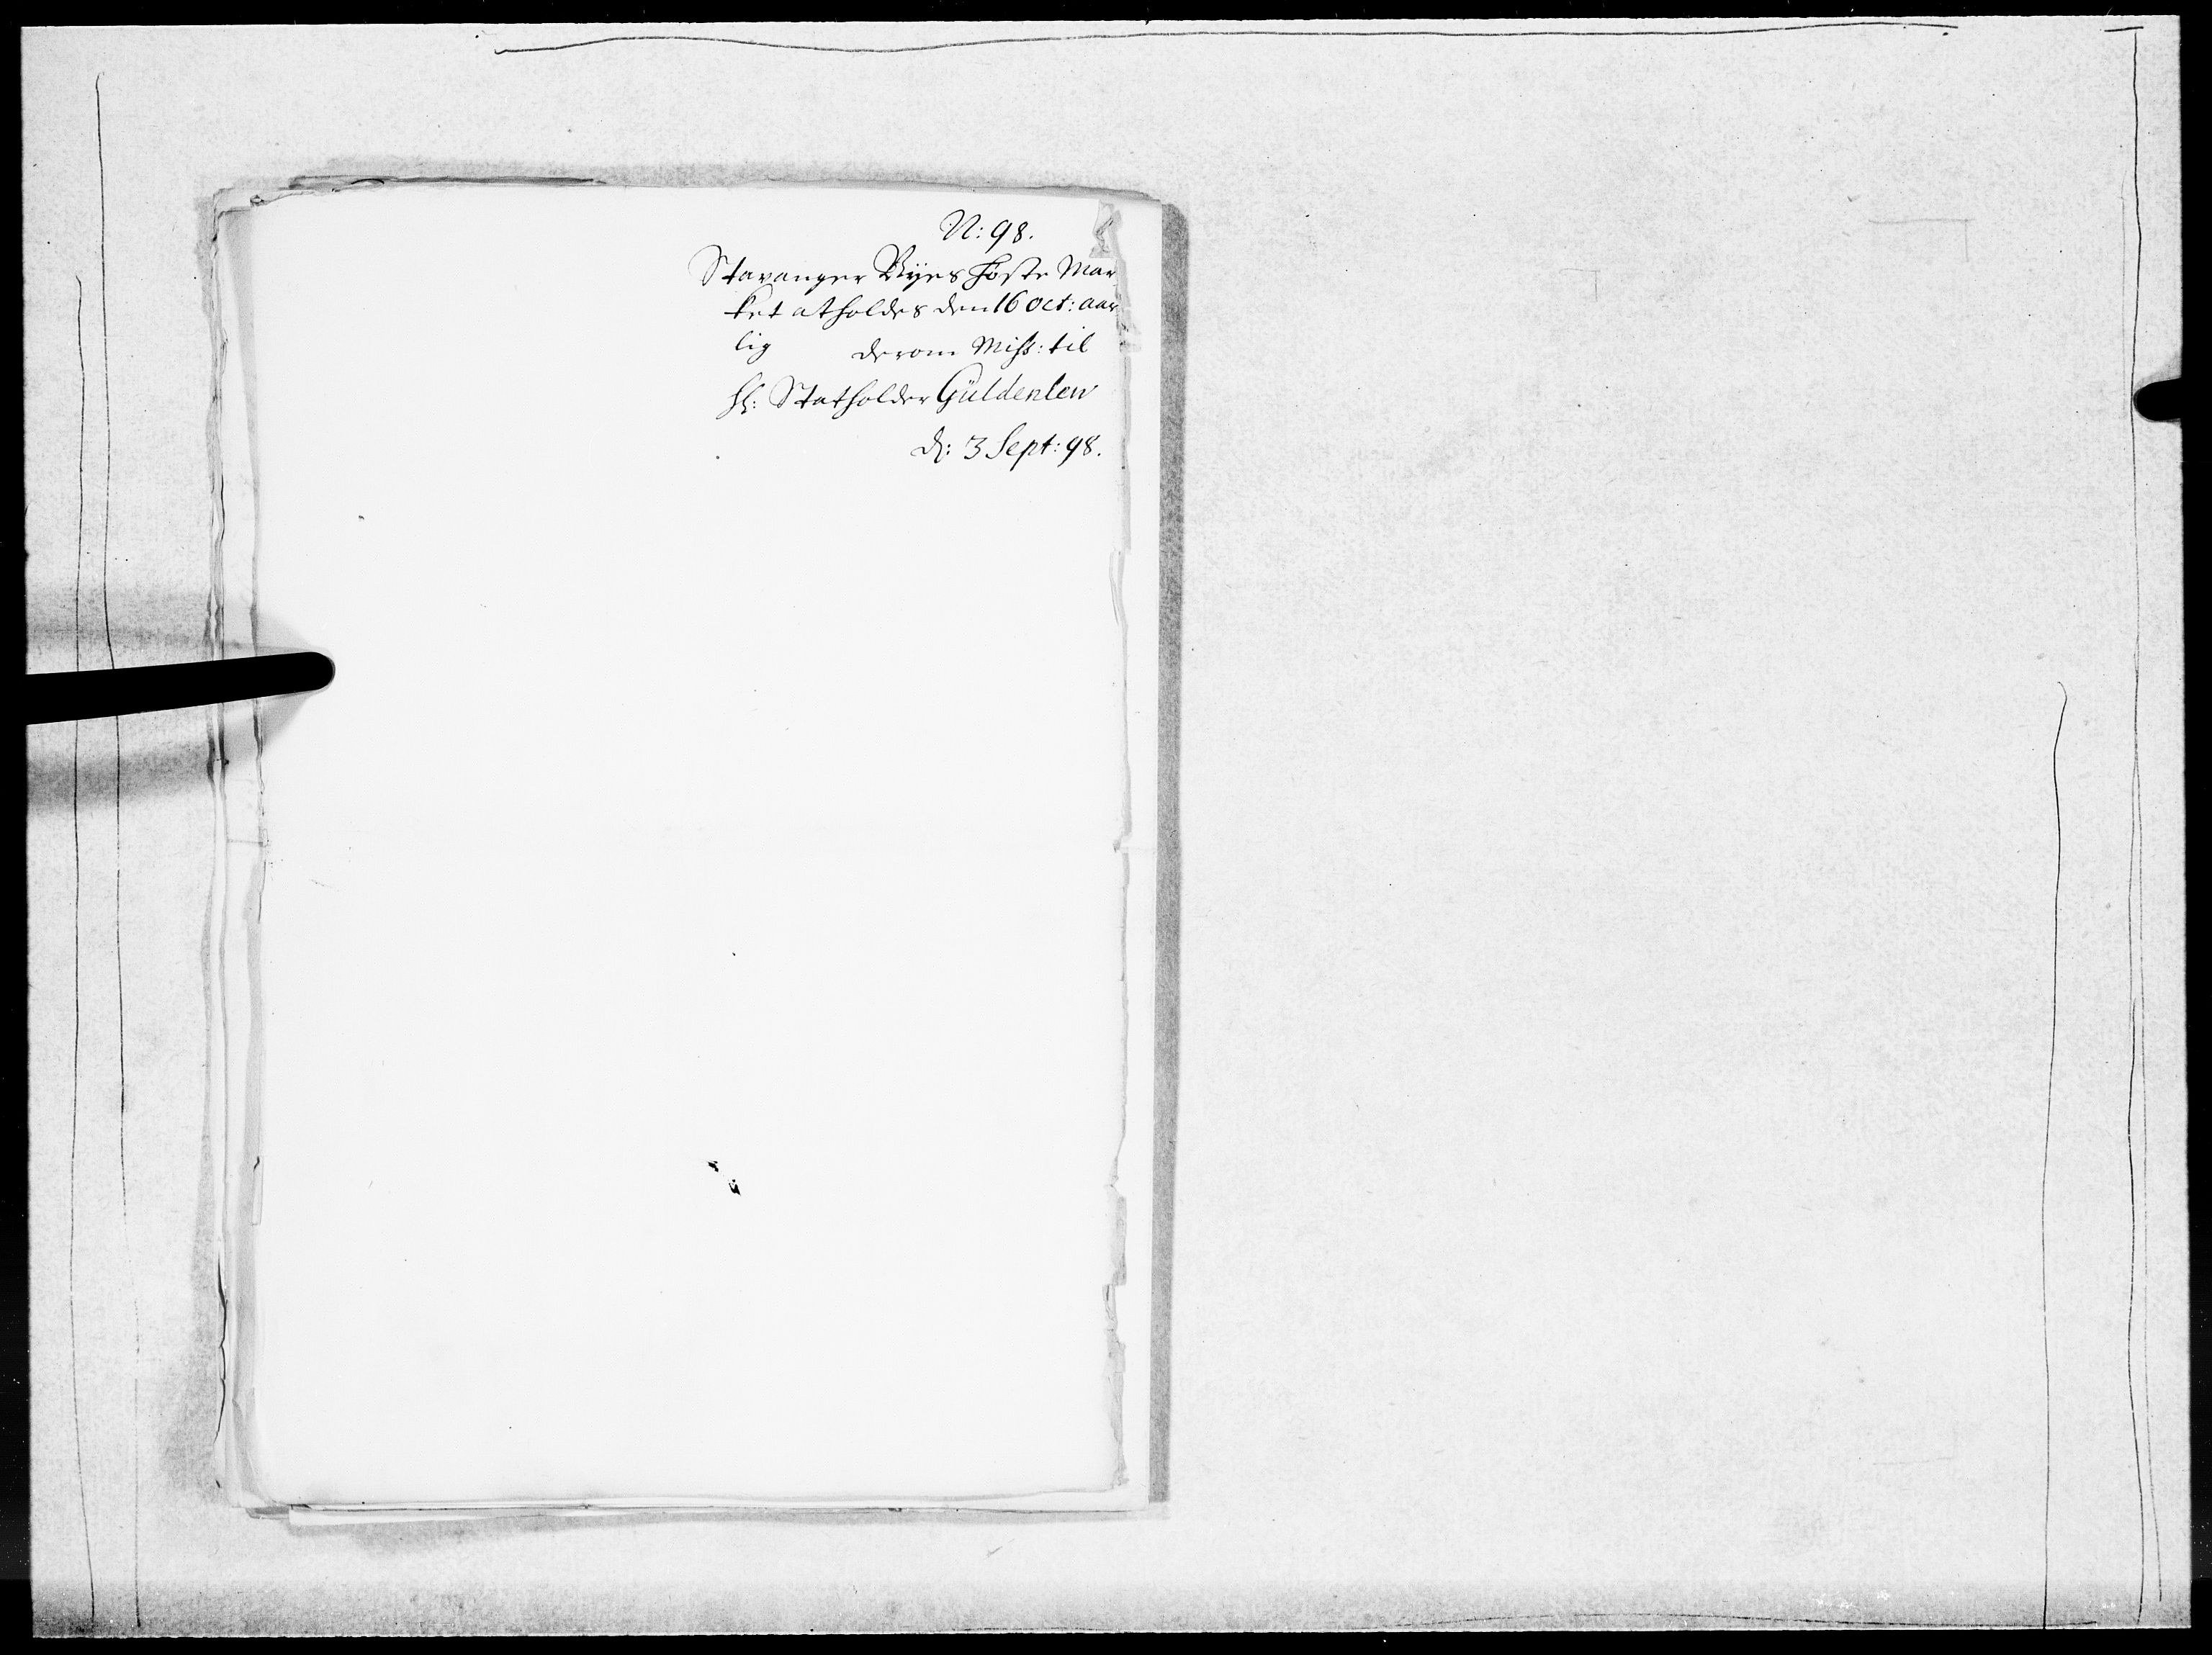 N: 98.
Stavanger Byes Høste Mar
ket at holdes den 16 Oct: aar
lig derom Miss: til
H: Statholder Güldenlew
d: 3 Sept: 98.